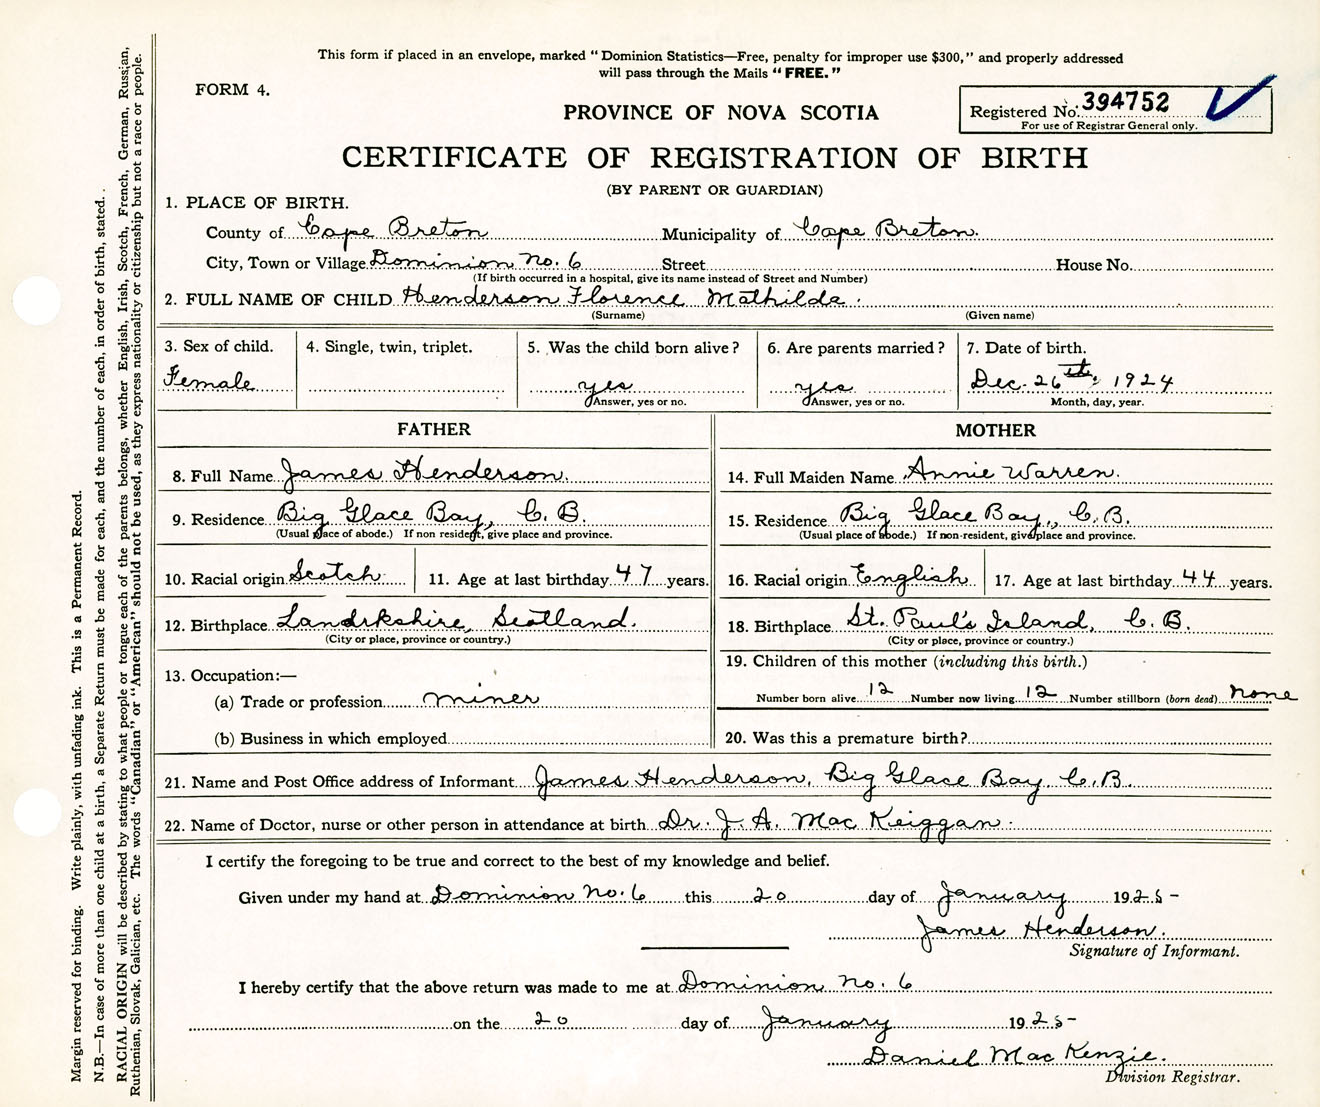 This form if placed in an envelope, marked "Dominion Statistics—Free, penalty for improper use $300," and properly addressed
will pass through the Mails "FREE."
FORM 4.
PROVINCE OF NOVA SCOTIA
Registered No. 394752
For use of Registrar General only.
CERTIFICATE OF REGISTRATION OF BIRTH
(BY PARENT OR GUARDIAN)
1. PLACE OF BIRTH.
County of Cape Breton Municipality of Cape Breton.
City, Town or Village Dominion No. 6 Street House No.
(If birth occurred in a hospital, give its name instead of Street and Number)
2. FULL NAME OF CHILD Henderson Florence Mathilda.
(Surname) (Given name)
3. Sex of child. 4. Single, twin, triplet. 5. Was the child born alive? 6. Are parents married? 7. Date of birth.
Female yes yes Dec. 26th, 1924
Answer, yes or no. Answer, yes or no. Month, day, year.
FATHER MOTHER
8. Full Name James Henderson. 14. Full Maiden Name Annie Warren.
9. Residence Big Glace Bay, C. B. 15. Residence Big Glace Bay, C.B.
(Usual place of abode.) If non resident, give place and province. (Usual place of abode.) If non-resident, give place and province.
10. Racial origin Scotch 11. Age at last birthday 47 years. 16. Racial origin English 17. Age at last birthday 44 years.
12. Birthplace Landrkshire, Scotland. 18. Birthplace St. Paul's Island, C. B.
(City or place, province or country.) (City or place, province or country.)
13. Occupation:— 19. Children of this mother (including this birth.)
(a) Trade or profession miner Number born alive 12 Number now living 12 Number stillborn (born dead) none
(b) Business in which employed 20. Was this a premature birth?
21. Name and Post Office address of Informant James Henderson, Big Glace Bay, C.B.
22. Name of Doctor, nurse or other person in attendance at birth Dr. J. A. Mac Keiggan.
I certify the foregoing to be true and correct to the best of my knowledge and belief.
Given under my hand at Dominion No. 6 this 20 day of January 1925-
James Henderson.
Signature of Informant.
I hereby certify that the above return was made to me at Dominion No. 6
on the 20 day of January 1925-
Daniel Mac Kenzie.
Division Registrar.
Margin reserved for binding. Write plainly, with unfading ink. This is a Permanent Record.
N.B.—In case of more than one child at a birth, a Separate Return must be made for each, and the number of each, in order of birth, stated.
RACIAL ORIGIN will be described by stating to what people or tongue each of the parents belongs, whether English, Irish, Scotch, French, German, Russian,
Ruthenian, Slovak, Galician, etc. The words "Canadian" or "American" should not be used, as they express nationality or citizenship but not a race or people.